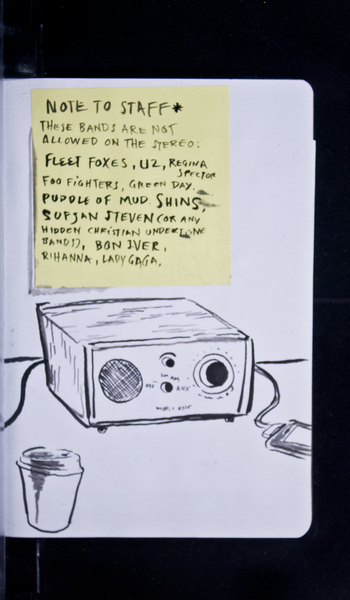 NOTE TO STAFF*
THESE BANDS ARE NOT
ALLOWED ON THE STEREO:
FLEET FOXES, U2, REGINA
SPECTOR
FOO FIGHTERS, GREEN DAY,
PUDDLE OF MUD. SHINS,
SUFJAN STEVEN (OR ANY
HIDDEN CHRISTIAN UNDERTONE
BANDS), BON IVER,
RIHANNA, LADY GAGA.
FM AM
OFF AUX